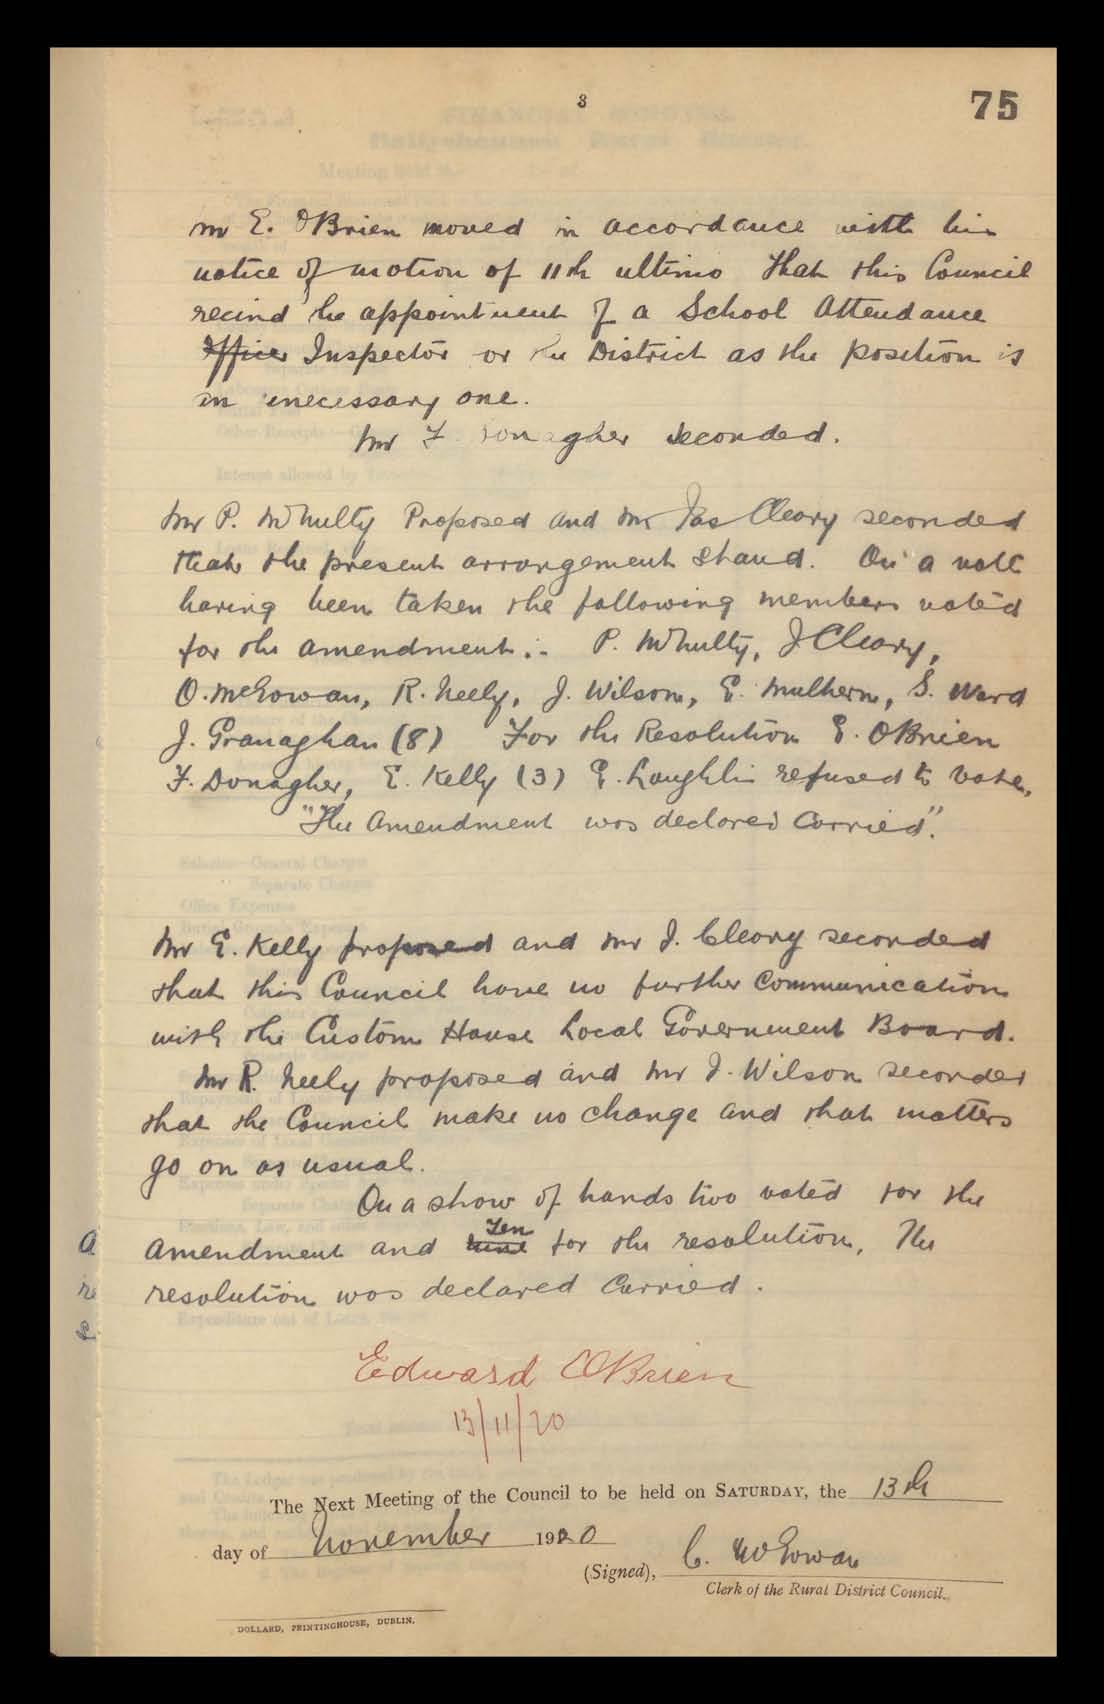 3
75
Mr E. O'Brien moved in accordance with his
notice of motion of 11th ultimo that this Council
recind the appointment of a School Attendance
Officer Inspector or the District as the position is
an unecessary one.
Mr F. Donagher seconded.
Mr P. McNulty Proposed and Mr Jas Cleary seconded
that the present arrangement stand. On a vote
having been taken the following members voted
for the amendment:- P. McNulty, J Cleary,
O. McGowan, R. Neely, J. Wilson, E. Mulhern, S. Ward
J. Granaghan (8) For the Resolution E. O'Brien
F. Donagher, E. Kelly (3) E. Loughlin refused to vote.
"The Amendment was declared Carried".
Mr E. Kelly proposed and Mr J. Cleary seconded
that this Council have no further Communication
with the Custom House Local Government Board.
Mr R. Neely proposed and Mr J. Wilson seconded
that the Council make no change and that matters
go on as usual.
On a show of hands two voted for the
Ten
amendment and nine for the resolution, The
resolution was declared Carried.
Edward O'Brien
13/11/20
The Next Meeting of the Council to be held on SATURDAY, the 13th
day of November 1920
(Signed), C. McGowan
Clerk of the Rural District Council.
DOLLARD, PRINTINGHOUSE, DUBLIN.